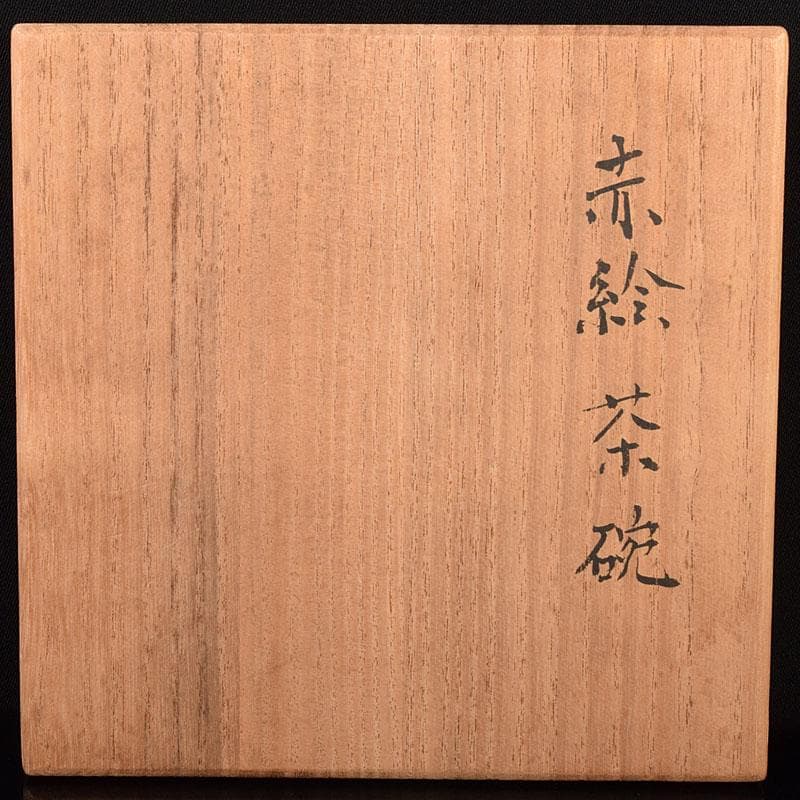 赤絵茶碗